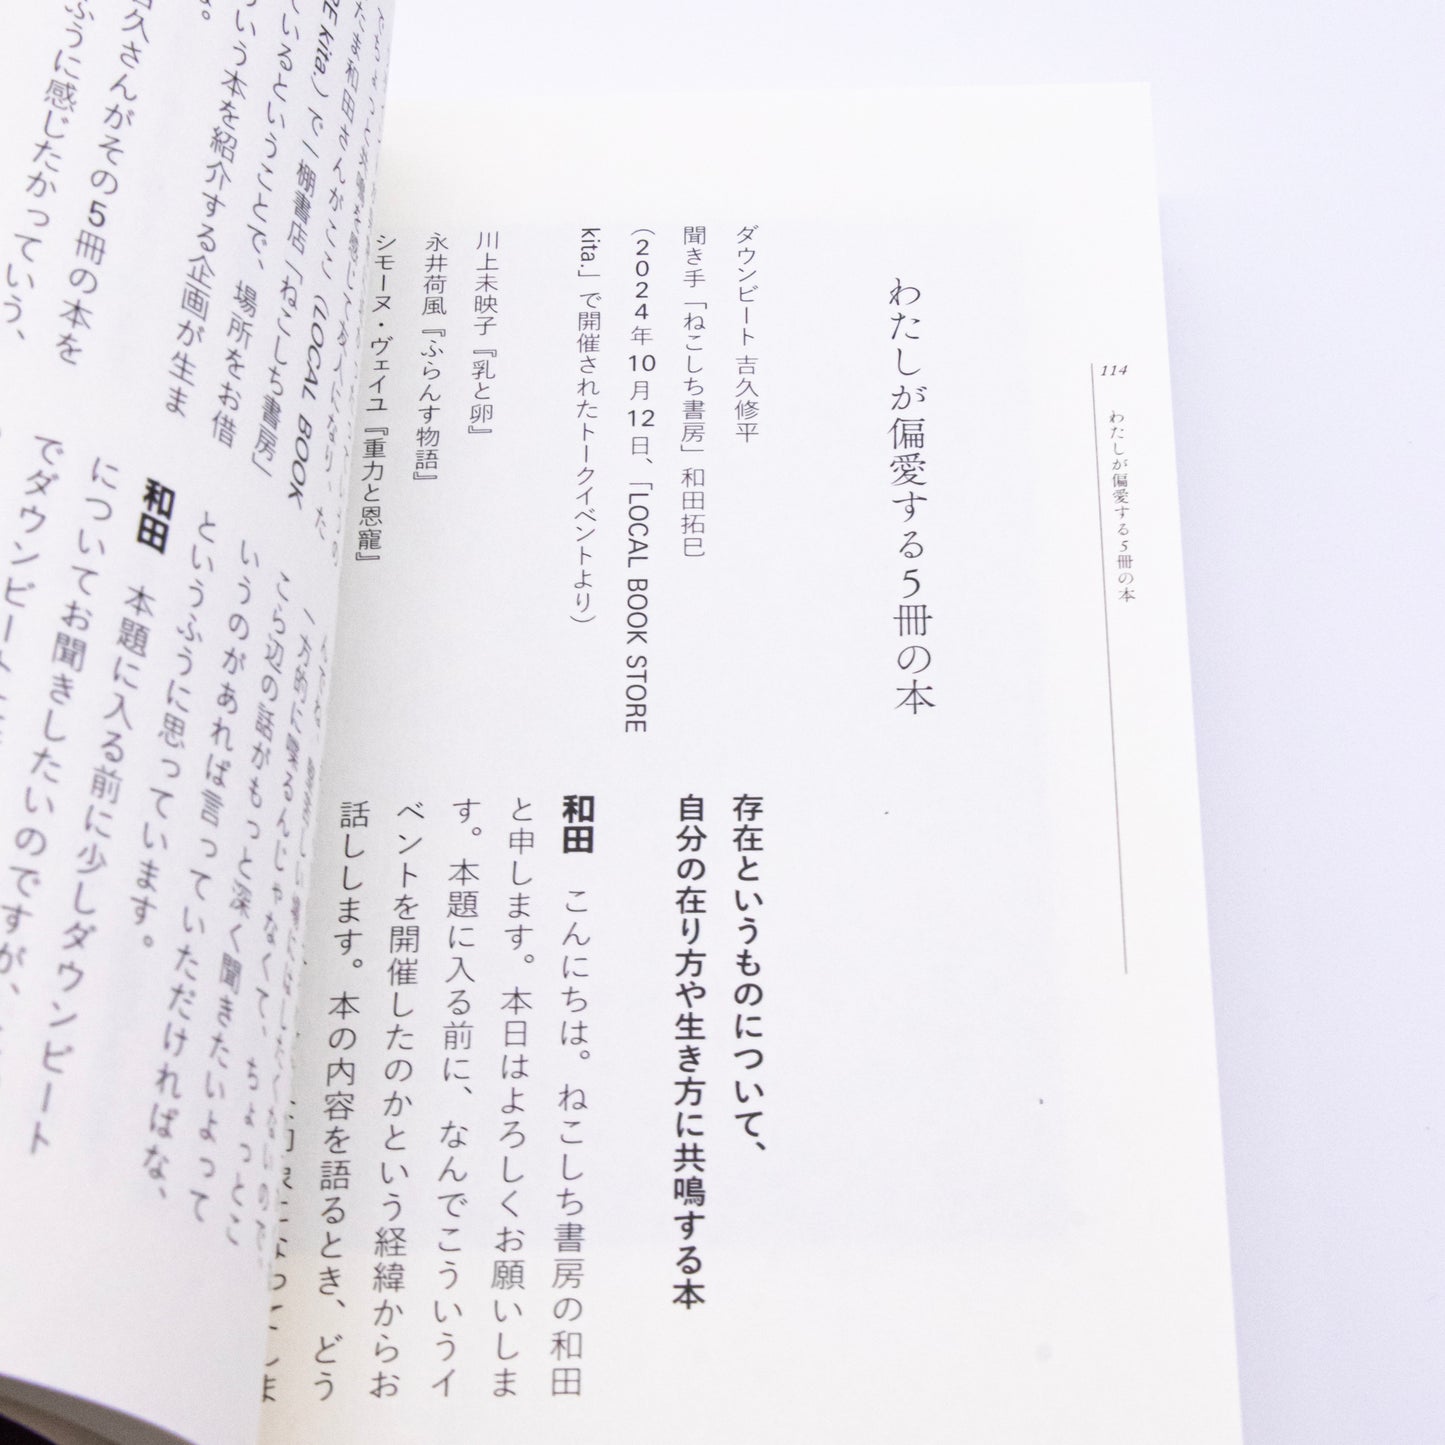 114
わたしが偏愛する5冊の本
わたしが偏愛する5冊の本
ダウンビート 吉久修平
聞き手「ねこしち書房」和田拓巳
（2024年10月12日、「LOCAL BOOK STORE
kita.」で開催されたトークイベントより）
川上未映子『乳と卵』
永井荷風『ふらんす物語』
シモーヌ・ヴェイユ『重力と恩寵』
存在というものについて、
自分の在り方や生き方に共鳴する本
和田　こんにちは。ねこしち書房の和田
と申します。本日はよろしくお願いしま
す。本題に入る前に、なんでこういうイ
ベントを開催したのかという経緯からお
話しします。本の内容を語るとき、どう
だき和田さんがここ（LOCAL BOOK
RE kita.）で一棚書店「ねこしち書房」
ているということで、場所をお借
いう本を紹介する企画が生ま
久さんがその5冊の本を
ふうに感じたかっていう、
こら辺の話がもっと深く聞きたいよって
いうのがあれば言っていただければな、
というふうに思っています。
和田　本題に入る前に少しダウンビート
についてお聞きしたいのですが、
でダウンビート